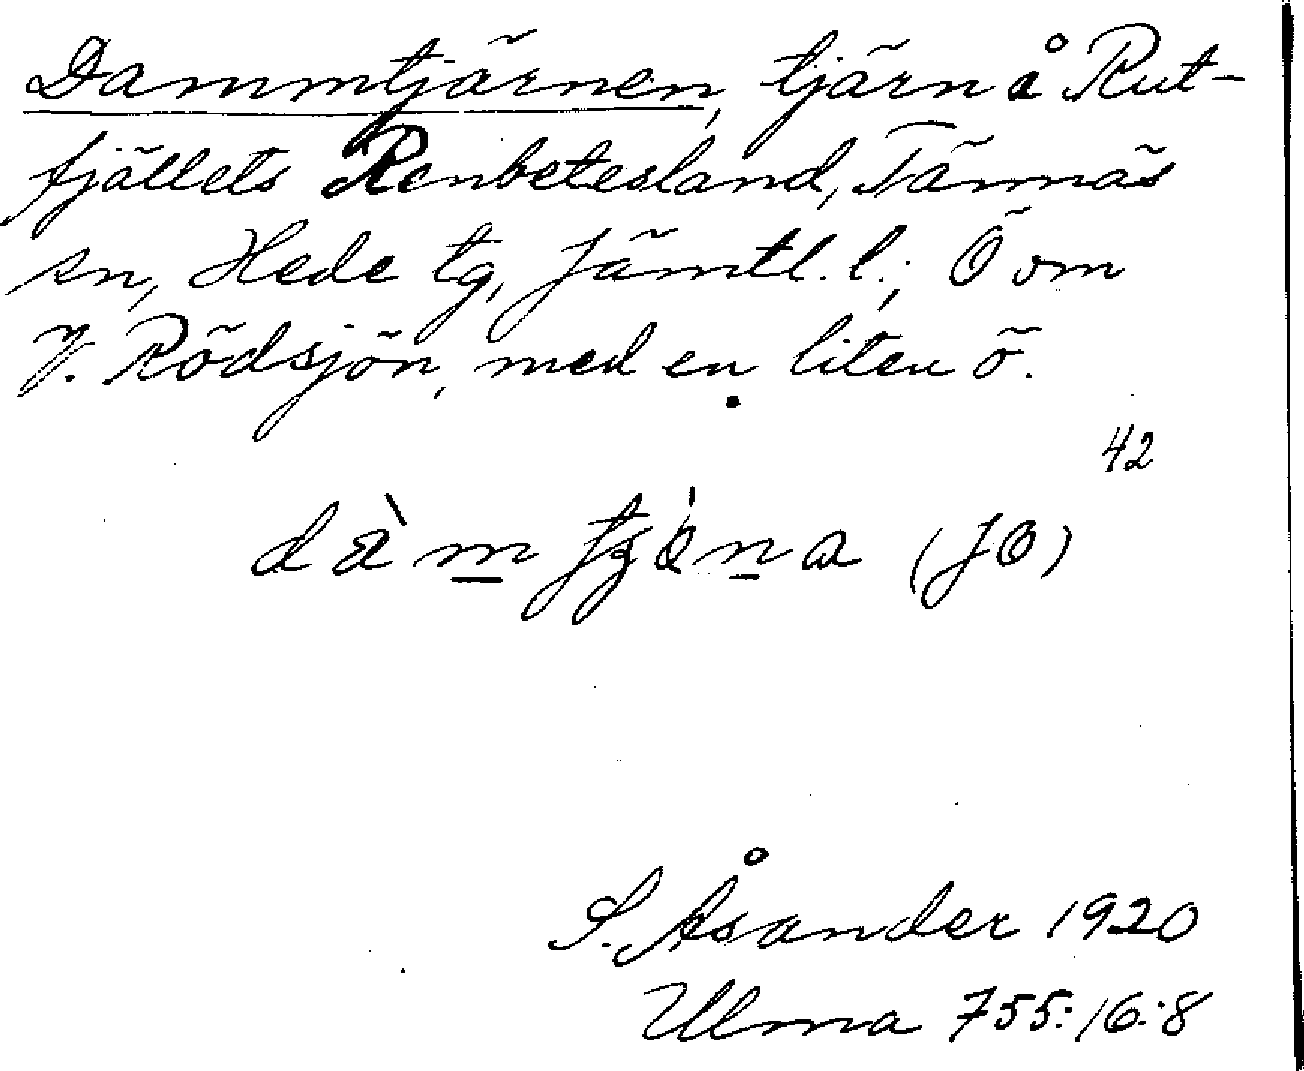 Dammtjärnen, tjärn å Rut-
fjällets Renbetesland, Tännäs
sn, Hede tg, Jämtl. l.; Ö om
V. Rödsjön, med en liten ö.
42
(JO)
S. Åsander 1920
Ulma 755:16:8